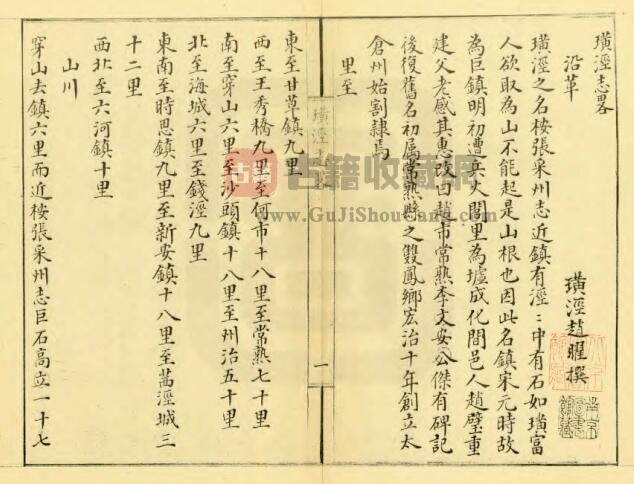 璜涇志畧
璜涇趙曜撰
沿革
璜涇之名桉張采州志近鎮有涇:中有石如璜富
人欲取為山不能起是山根也因此名鎮宋元時故
為巨鎮明初遭兵火閭里為墟成化間邑人趙璧重
建父老感其惠改曰趙市常熟李文安公傑有碑記
後復舊名初属常熟縣之雙鳳鄉宏治十年創立太
倉州始割隷焉
里至
璜涇志
一
東至甘草鎮九里
西至王秀橋九里至何市十八里至常熟七十里
南至穿山六里至沙頭鎮十八里至州治五十里
北至海城六里至錢涇九里
東南至時思鎮九里至新安鎮十八里至茜涇城三
十二里
西北至六河鎮十里
山川
穿山去鎮六里而近桉張采州志巨石高立一十七
南京圖書館藏
古籍收藏網
www.GuJiShouCang.com